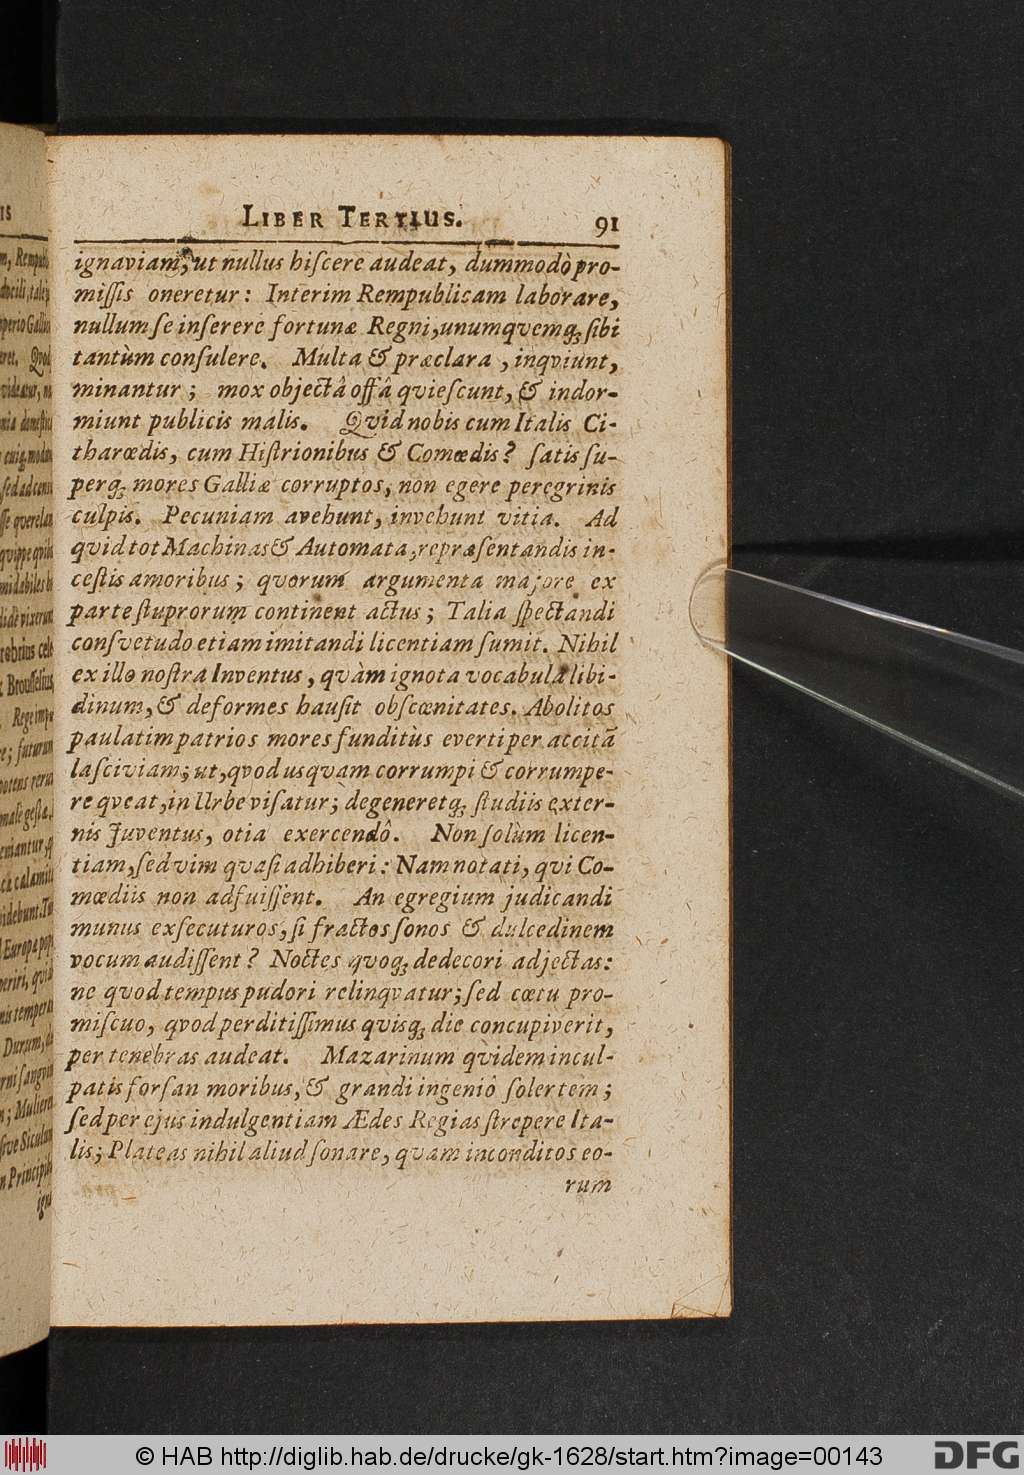 LIBER TERTIUS. 91
ignaviam, ut nullus hiſcere audeat, dummodò pro-
miſſis oneretur: Interim Rempublicam laborare,
nullum ſe inſerere fortunæ Regni, unumqvemq; ſibi
tantùm conſulere. Multa & præclara, inqviunt,
minantur; mox objectâ offâ qvieſcunt, & indor-
miunt publicis malis. Qvid nobis cum Italis Ci-
tharœdis, cum Hiſtrionibus & Comœdis? ſatis ſu-
perq; mores Galliæ corruptos, non egere peregrinis
culpis. Pecuniam avehunt, invehunt vitia. Ad
qvid tot Machinas & Automata, repræſentandis in-
ceſtis amoribus; qvorum argumenta majore ex
parte ſtuprorum continent actus; Talia ſpectandi
conſvetudo etiam imitandi licentiam ſumit. Nihil
ex illo noſtra Inventus, qvàm ignota vocabula libi-
dinum, & deformes hauſit obſcœnitates. Abolitos
paulatim patrios mores funditùs everti per accitã
laſciviam; ut, qvod usqvam corrumpi & corrumpe-
re qveat, in Urbe viſatur; degeneretq; ſtudiis exter-
nis Juventus, otia exercendô. Non ſolùm licen-
tiam, ſed vim qvaſi adhiberi: Nam notati, qvi Co-
mœdiis non adfuiſſent. An egregium judicandi
munus exſecuturos, ſi fractos ſonos & dulcedinem
vocum audiſſent? Noctes qvoq; dedecori adjectas:
ne qvod tempus pudori relinqvatur; ſed cœtu pro-
miſcuo, qvod perditiſſimus qvisq; die concupiverit,
per tenebras audeat. Mazarinum qvidem incul-
patis forſan moribus, & grandi ingeniô ſolertem;
ſed per ejus indulgentiam Ædes Regias ſtrepere Ita-
lis; Plateas nihil aliud ſonare, qvam inconditos eo-
rum
© HAB http://diglib.hab.de/drucke/gk-1628/start.htm?image=00143
DFG